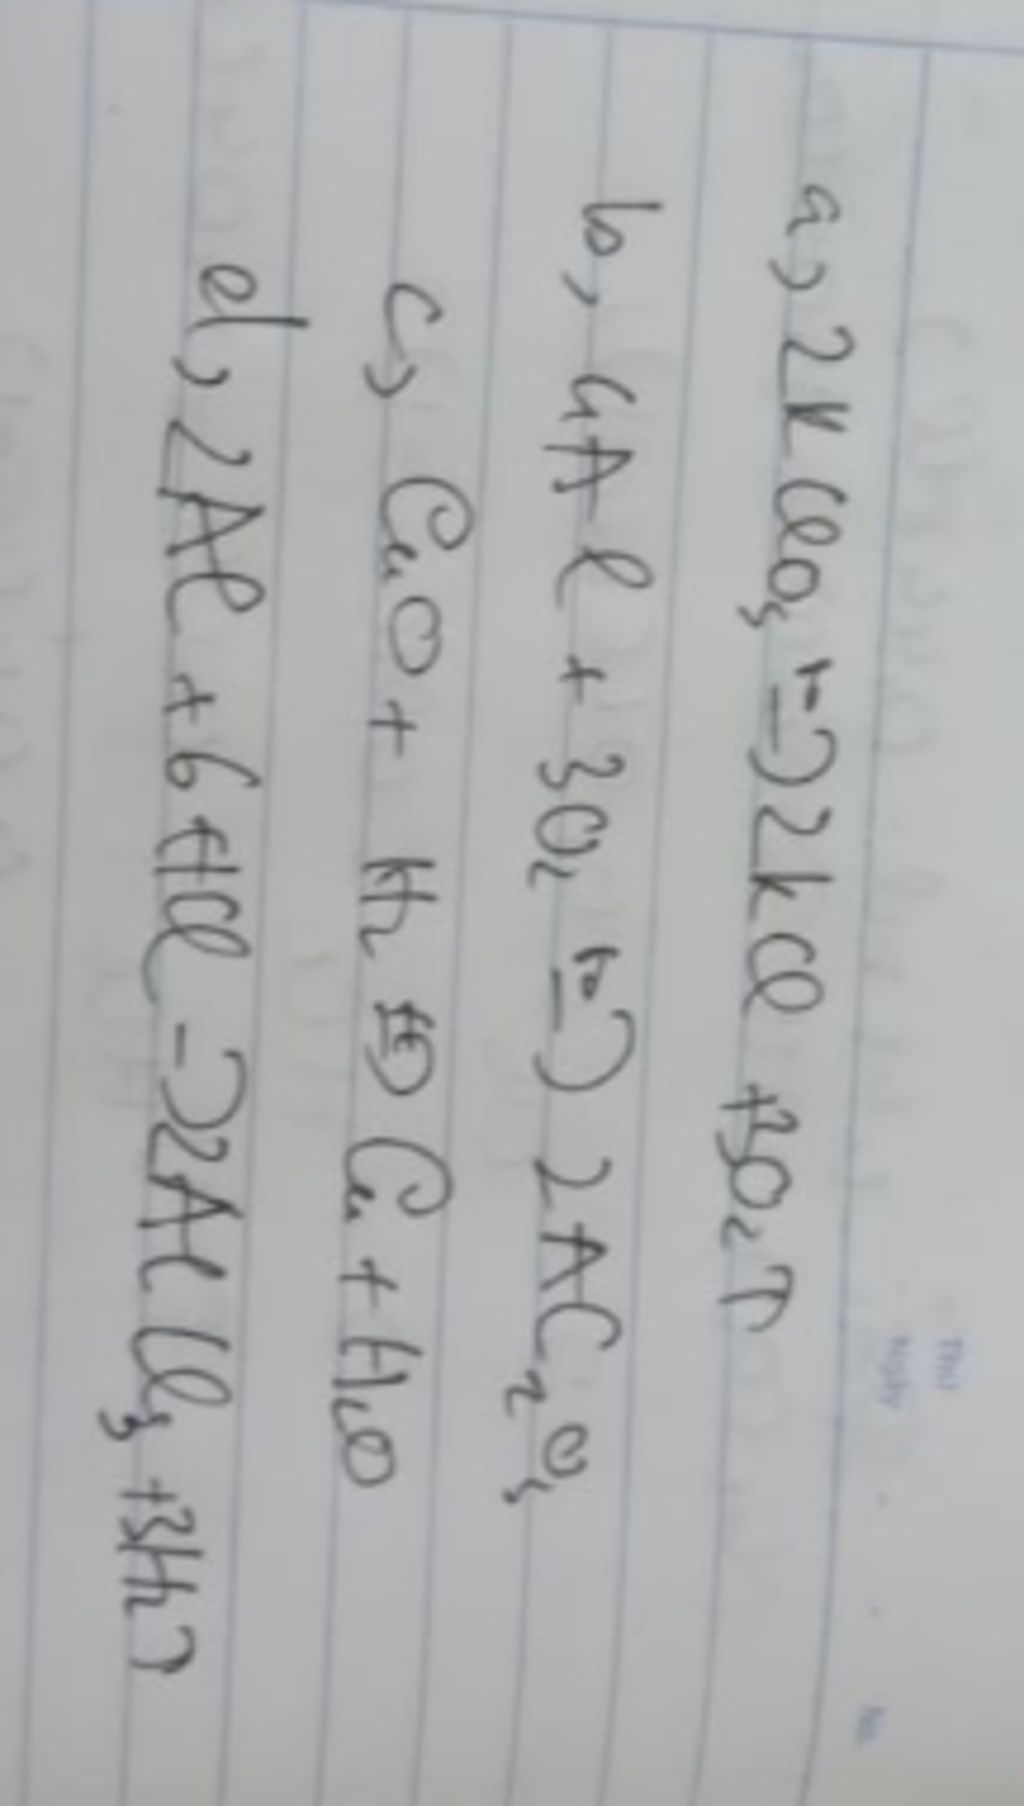 a, 2KClO₃ t° → 2KCl + 3O₂ ↑
b, 4Al + 3O₂ t° → 2Al₂O₃
c, CuO + H₂ t° → Cu + H₂O
d, 2Al + 6HCl → 2AlCl₃ + 3H₂ ↑
Thứ
Ngày
No